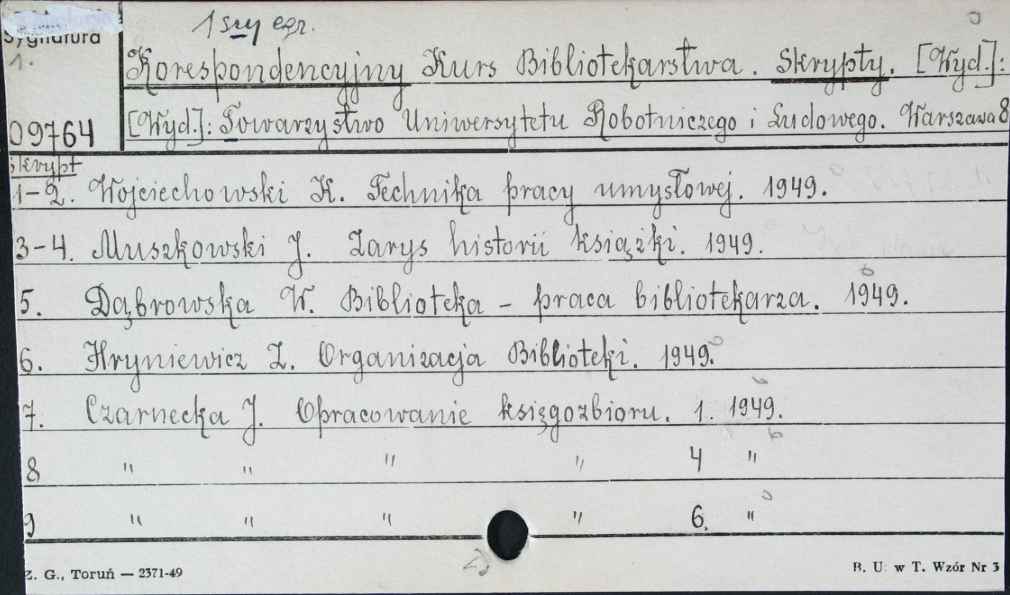 1szy egz.
Sygnatura
1.
Korespondencyjny Kurs Bibliotekarstwa. Skrypty. [Wyd.]:
09764
[Wyd.]: Towarzystwo Uniwersytetu Robotniczego i Ludowego. Warszawa 8
skrypt
1-2. Wojciechowski K. Technika pracy umysłowej. 1949.
3-4. Muszkowski J. Zarys historii książki. 1949.
5. Dąbrowska W. Biblioteka - praca bibliotekarza. 1949.
6. Hryniewicz Z. Organizacja Biblioteki. 1949.
7. Czarnecka J. Opracowanie księgozbioru. 1. 1949.
8 " " " " 4 "
9 " " " " 6. "
Z. G., Toruń — 2371-49
B. U. w T. Wzór Nr 3